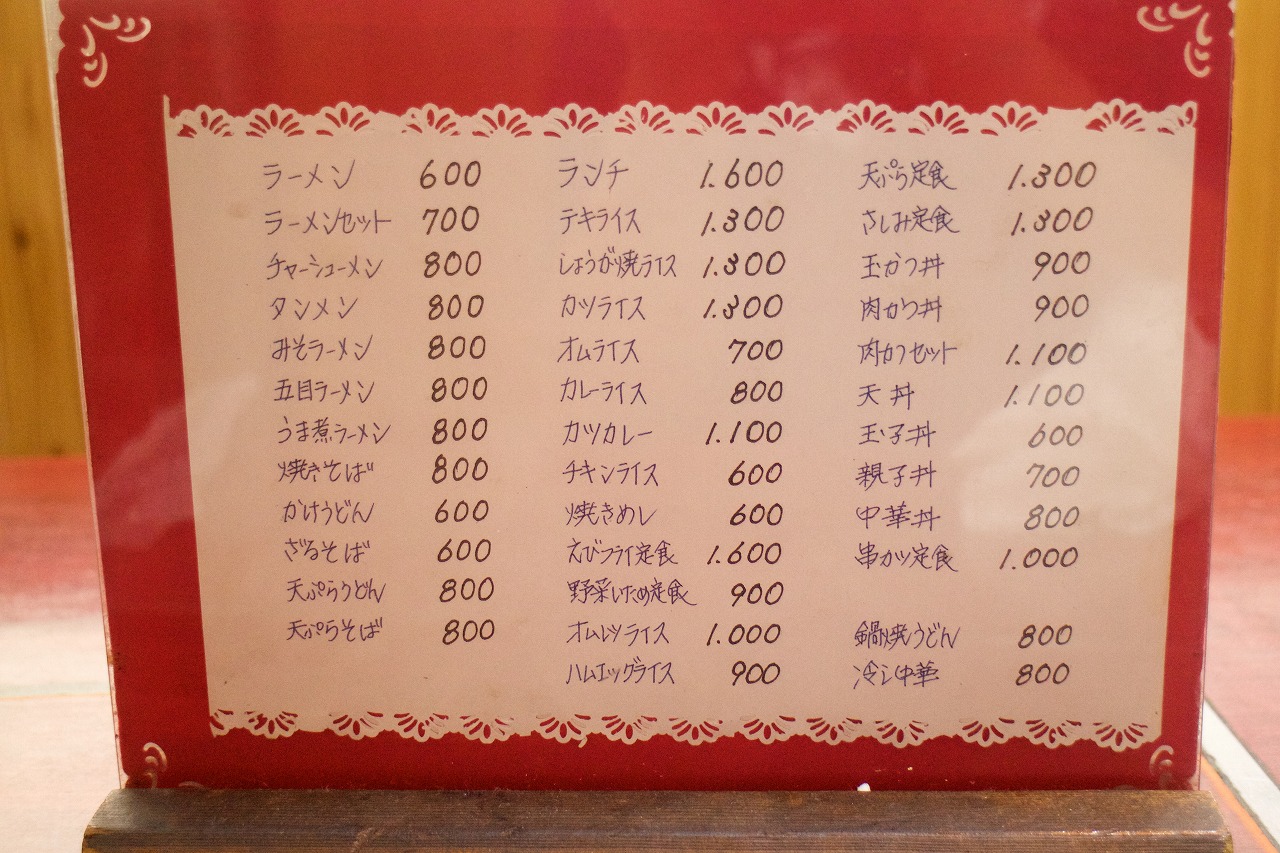 ラーメン 600
ラーメンセット 700
チャーシューメン 800
タンメン 800
みそラーメン 800
五目ラーメン 800
うま煮ラーメン 800
焼きそば 800
かけうどん 600
ざるそば 600
天ぷらうどん 800
天ぷらそば 800
ランチ 1.600
テキライス 1.300
しょうが焼ライス 1.300
カツライス 1.300
オムライス 700
カレーライス 800
カツカレー 1.100
チキンライス 600
焼きめし 600
えびフライ定食 1.600
野菜いため定食 900
オムレツライス 1.000
ハムエッグライス 900
天ぷら定食 1.300
さしみ定食 1.300
玉かつ丼 900
肉かつ丼 900
肉かつセット 1.100
天丼 1.100
玉子丼 600
親子丼 700
中華丼 800
串カツ定食 1.000
鍋焼うどん 800
冷し中華 800